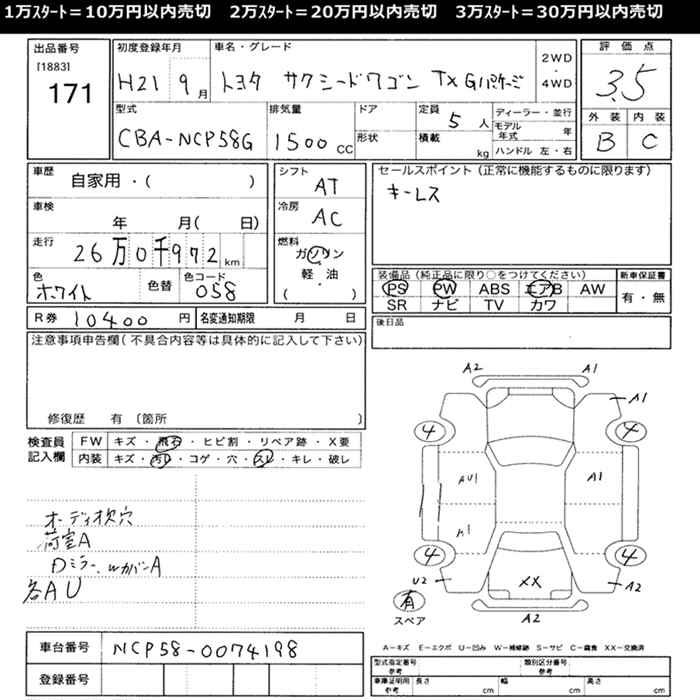 1万スタート=10万円以内売切　2万スタート=20万円以内売切　3万スタート=30万円以内売切
出品番号
[1883]
171
初度登録年月
H21 9月
車名・グレード
トヨタ サクシードワゴン TX Gパッケージ
2WD
・
4WD
評価点
3.5
型式
CBA-NCP58G
排気量
1500 CC
ドア
形状
定員 5人
積載 kg
ディーラー・並行
モデル年式 年
ハンドル 左・右
外装 内装
B C
車歴
自家用・( )
車検
年 月( 日)
走行
26万0千972km
色
ホワイト
色替
色コード
058
シフト
AT
冷房
AC
燃料
ガソリン
・
軽・油
( )
セールスポイント(正常に機能するものに限ります)
キーレス
装備品(純正品に限り○をつけてください)
PS PW ABS エアB AW
SR ナビ TV カワ
新車保証書
有・無
R券 10400 円
名変通知期限 月 日
後日品
注意事項申告欄(不具合内容等は具体的に記入して下さい)
修復歴 有〔箇所 〕
検査員
記入欄
FW キズ・飛石・ヒビ割・リペア跡・X要
内装 キズ・汚レ・コゲ・穴・スレ・キレ・破レ
オーディオ欠穴
荷室A
Dミラー、WカバーA
各AU
A2 A1
A1
4 4
AU1 A1
4 4
U2 XX A2
有
スペア
A2
A-キズ E-エクボ U-凹み W-補修跡 S-サビ C-腐食 XX-交換済
車台番号 NCP58-0074198
登録番号
型式指定番号
参考
類別区分番号
参考
車庫証明用
参考
長さ cm 幅 cm 高さ cm